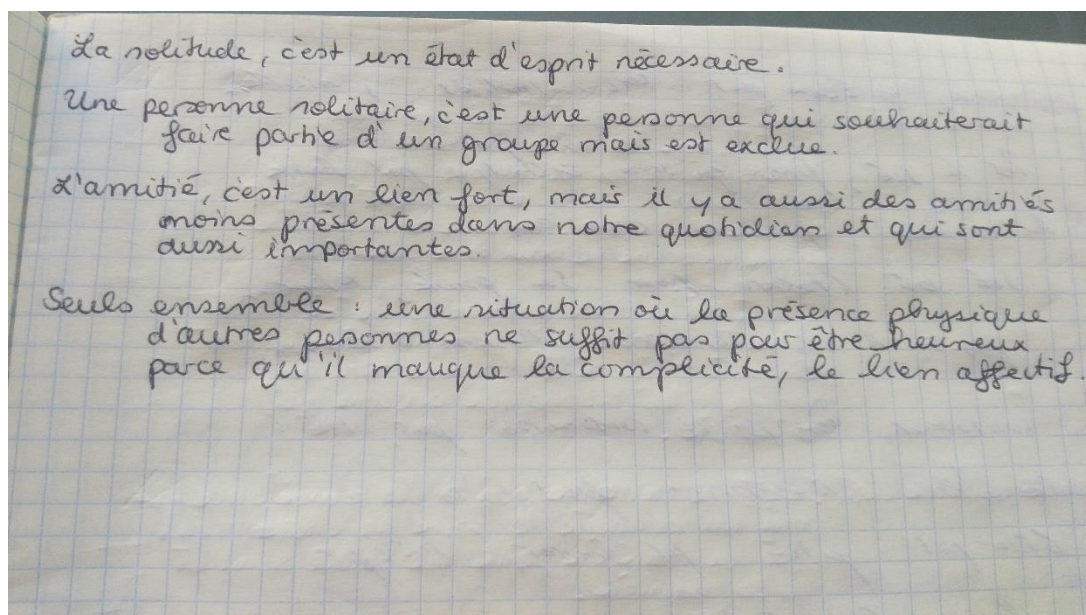 La solitude, c'est un état d'esprit nécessaire.
Une personne solitaire, c'est une personne qui souhaiterait
faire partie d'un groupe mais est exclue.
L'amitié, c'est un lien fort, mais il y a aussi des amitiés
moins présentes dans notre quotidien et qui sont
aussi importantes.
Seuls ensemble : une situation où la présence physique
d'autres personnes ne suffit pas pour être heureux
parce qu'il manque la complicité, le lien affectif.